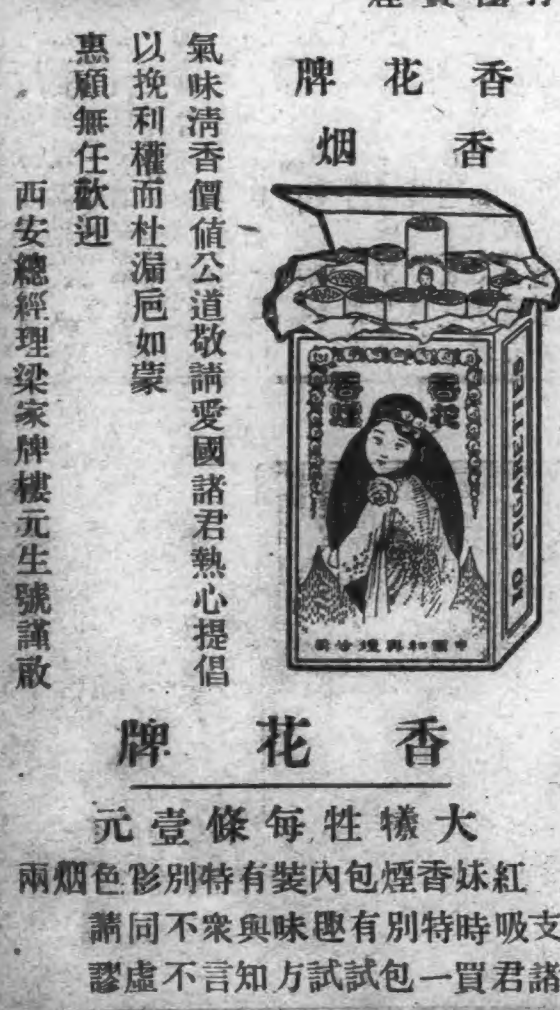 香花牌
香烟
香花
香煙
中國和興煙公司
10 CIGARETTES
氣味淸香價値公道敬請愛國諸君熱心提倡
以挽利權而杜漏巵如蒙
惠顧無任歡迎
西安總經理梁家牌樓元生號謹啟
香花牌
大犧牲每條壹元
紅妹香煙包內裝有特別彩色烟兩
支吸時特別有趣味與衆不同請
諸君買一包試試方知言不虛謬